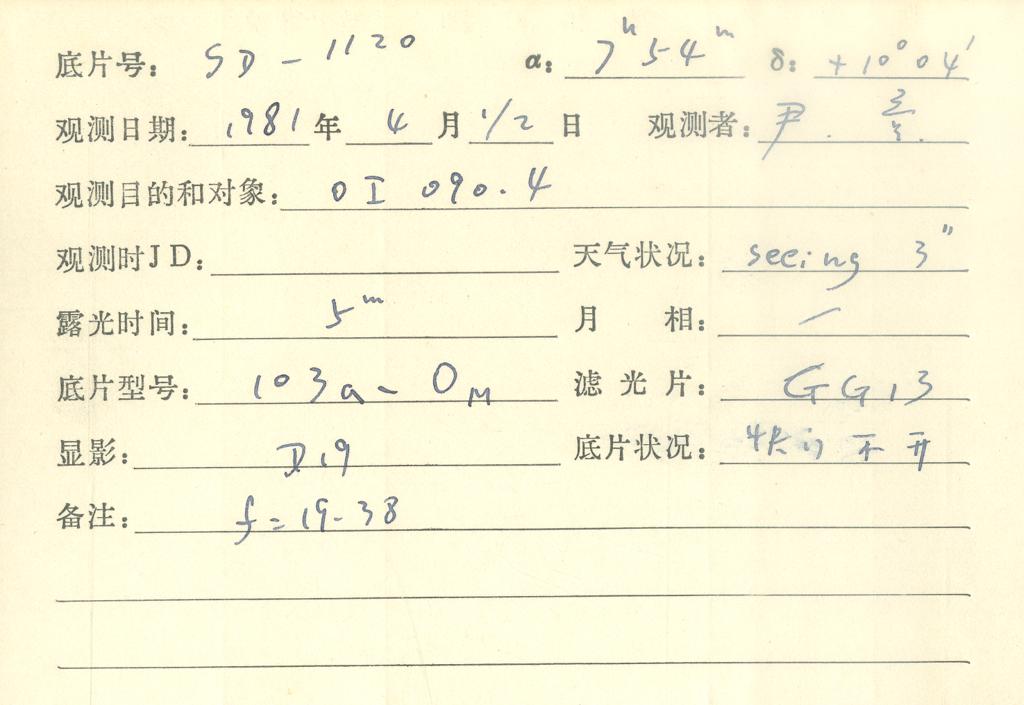 底片号: SD-1120 α: 7ʰ 54ᵐ δ: +10° 04′
观测日期: 1981 年 4 月 1/2 日 观测者: 尹.
观测目的和对象: OI 090.4
观测时JD: 天气状况: seeing 3″
露光时间: 5ᵐ 月 相: —
底片型号: 103a-OM 滤光片: GG13
显影: D19 底片状况: 不开
备注: f=19-38